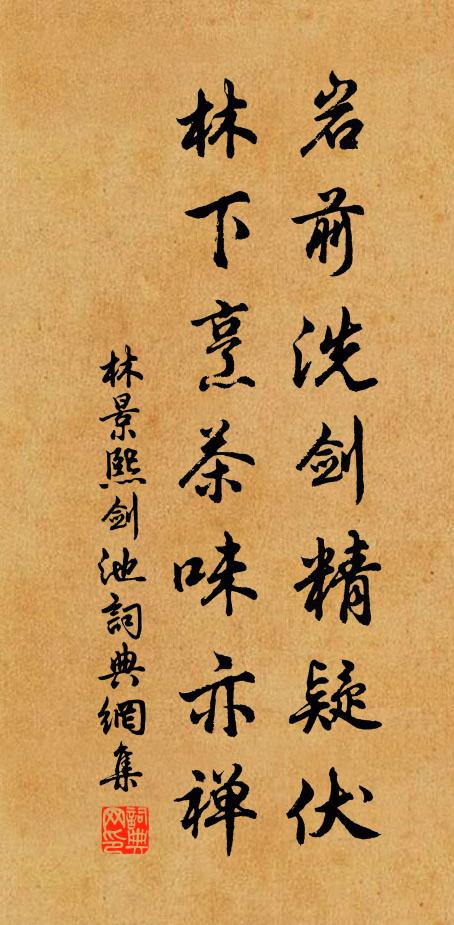 岩前洗剑精疑伏
林下烹茶味亦禅
林景熙剑池詞典網集
詞典网印